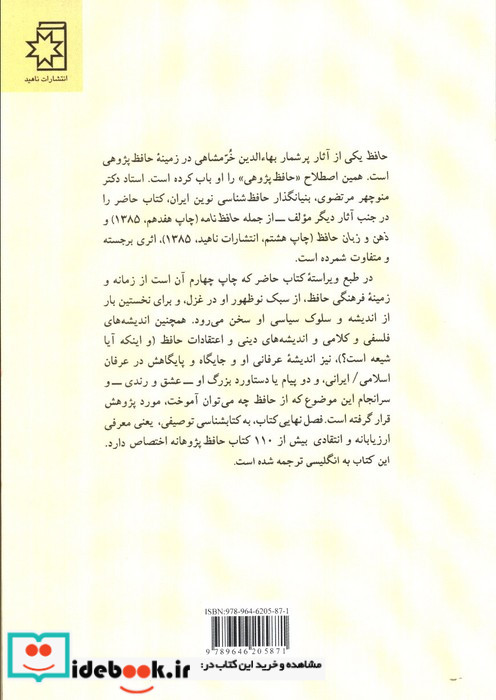 انتشارات ناهید
حافظ یکی از آثار پرشمار بهاءالدین خُرّمشاهی در زمینهٔ حافظ‌پژوهی
است. همین اصطلاح «حافظ‌پژوهی» را او باب کرده است. استاد دکتر
منوچهر مرتضوی، بنیانگذار حافظ‌شناسی نوین ایران، کتاب حاضر را
در جنب آثار دیگر مؤلف ــ از جمله حافظ‌نامه (چاپ هفدهم، ۱۳۸۵) و
ذهن و زبان حافظ (چاپ هشتم، انتشارات ناهید، ۱۳۸۵)، اثری برجسته
و متفاوت شمرده است.
در طبع ویراستهٔ کتاب حاضر که چاپ چهارم آن است از زمانه و
زمینهٔ فرهنگی حافظ، از سبک نوظهور او در غزل، و برای نخستین بار
از اندیشه و سلوک سیاسی او سخن می‌رود. همچنین اندیشه‌های
فلسفی و کلامی و اندیشه‌های دینی و اعتقادات حافظ (و اینکه آیا
شیعه است؟)، نیز اندیشهٔ عرفانی او و جایگاه و پایگاهش در عرفان
اسلامی/ ایرانی، و دو پیام یا دستاورد بزرگ او ــ عشق و رندی ــ و
سرانجام این موضوع که از حافظ چه می‌توان آموخت، مورد پژوهش
قرار گرفته است. فصل نهایی کتاب، به کتابشناسی توصیفی، یعنی معرفی
ارزیابانه و انتقادی بیش از ۱۱۰ کتاب حافظ‌پژوهانه اختصاص دارد.
این کتاب به انگلیسی ترجمه شده است.
ISBN:978-964-6205-87-1
9 789646 205871
مشاهده و خرید این کتاب در:
iidebook.ir